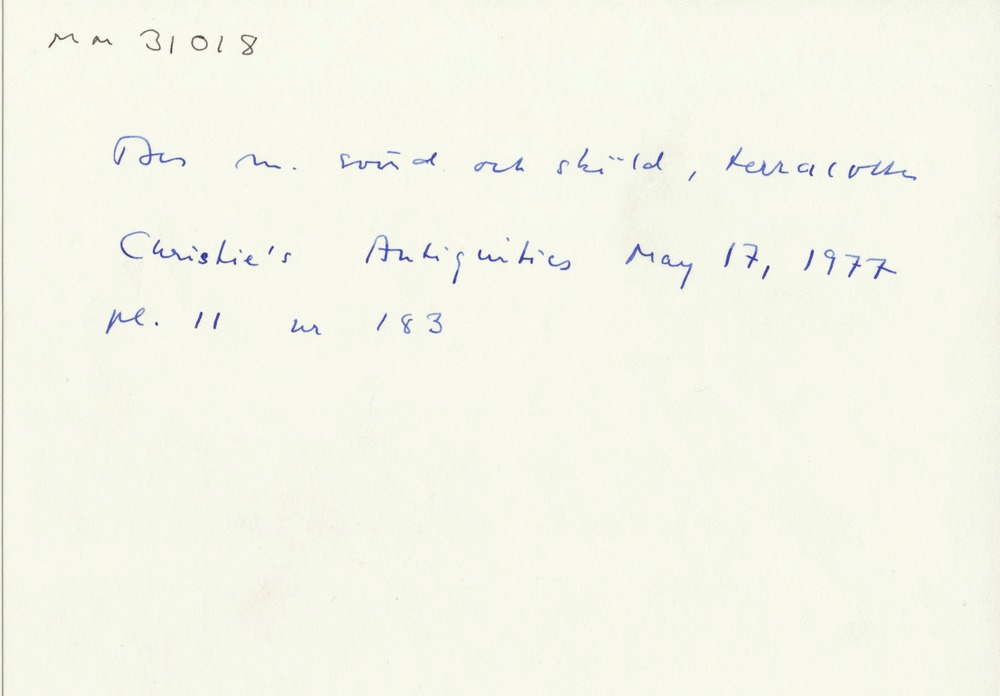 MM 31018
Bes m. svärd och sköld, terracotta
Christie's Antiquities May 17, 1977
pl. 11 nr 183